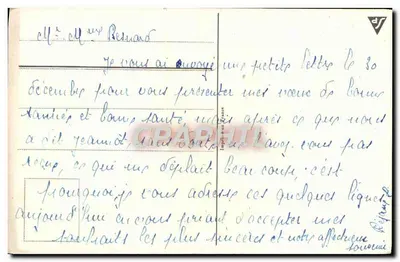 Mr Mme Besnard
Je vous ai envoyé une petite lettre le 30
décembre pour vous présenter mes vœux de bonne
année et bonne santé mais après ce que nous
a dit Jeannot sans doute ne l'avez vous pas
reçue, ce qui me déplait beaucoup c'est
pourquoi je vous adresse ces quelques lignes
aujourd'hui en vous priant d'accepter mes
souhaits les plus sincères et notre affectueux
souvenir
CPARAMA